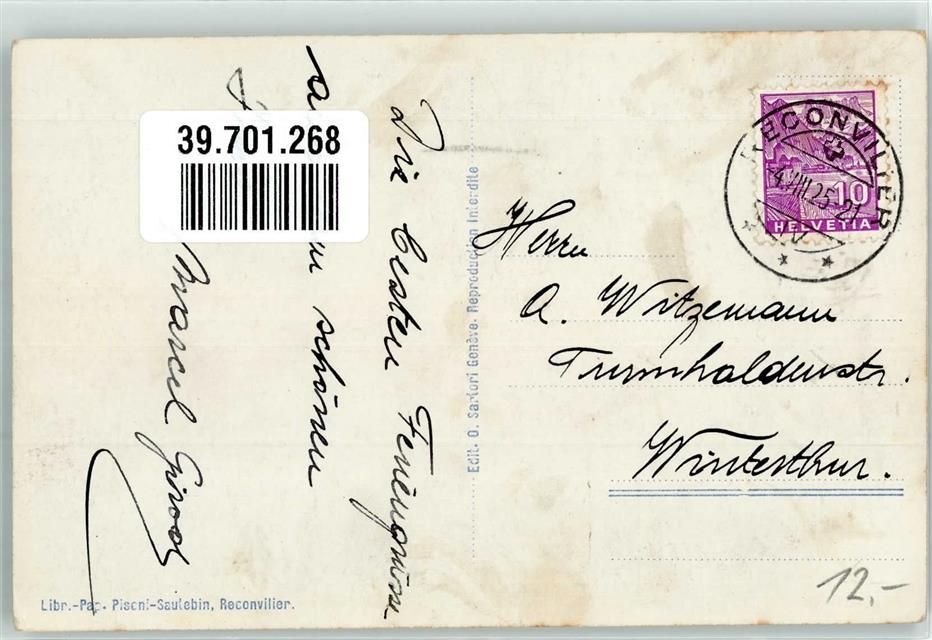 39.701.268
Die besten Feriengrüsse
schönen
Marcel Girod
Edit. O. Sartori Genève. Reproduction Interdite
RECONVILIER
HELVETIA
10
Herrn
A. Witzemann
Turmhaldenstr.
Winterthur.
Libr.-Pap. Pisoni-Sautebin, Reconvilier.
12,-